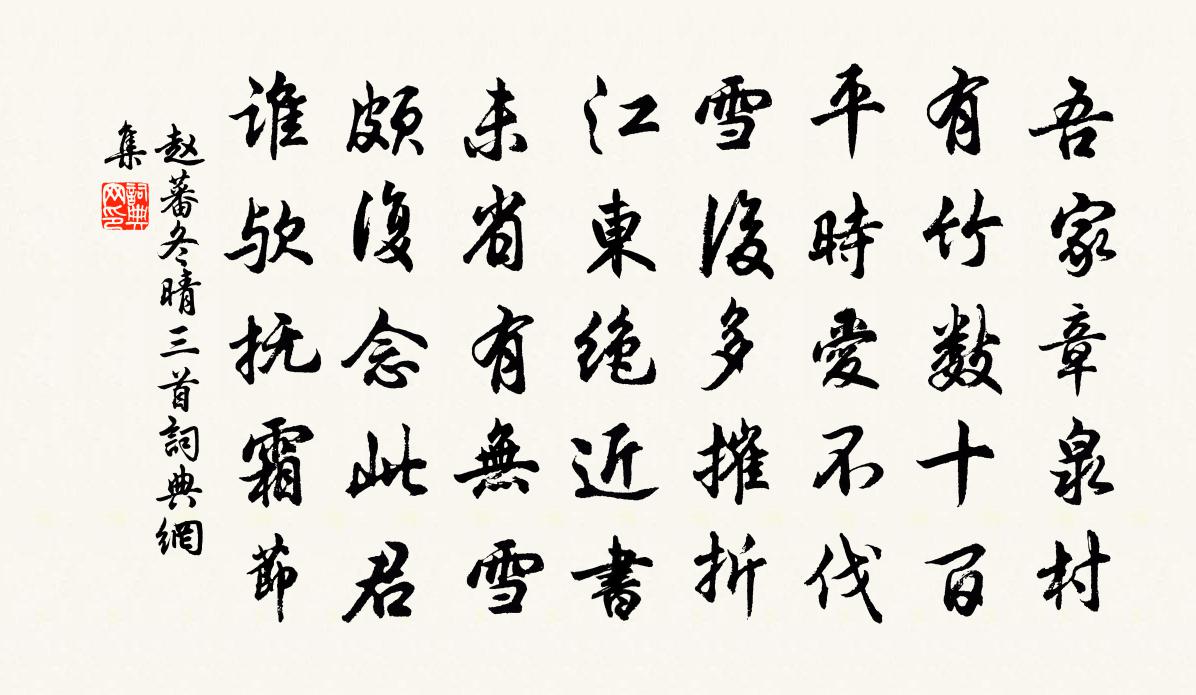 吾家章泉村
有竹數十百
平時愛不伐
雪後多摧折
江東絕近書
未省有無雪
頗復念此君
谁欤抚霜節
赵蕃冬晴三首詞典網
集
詞典
网印